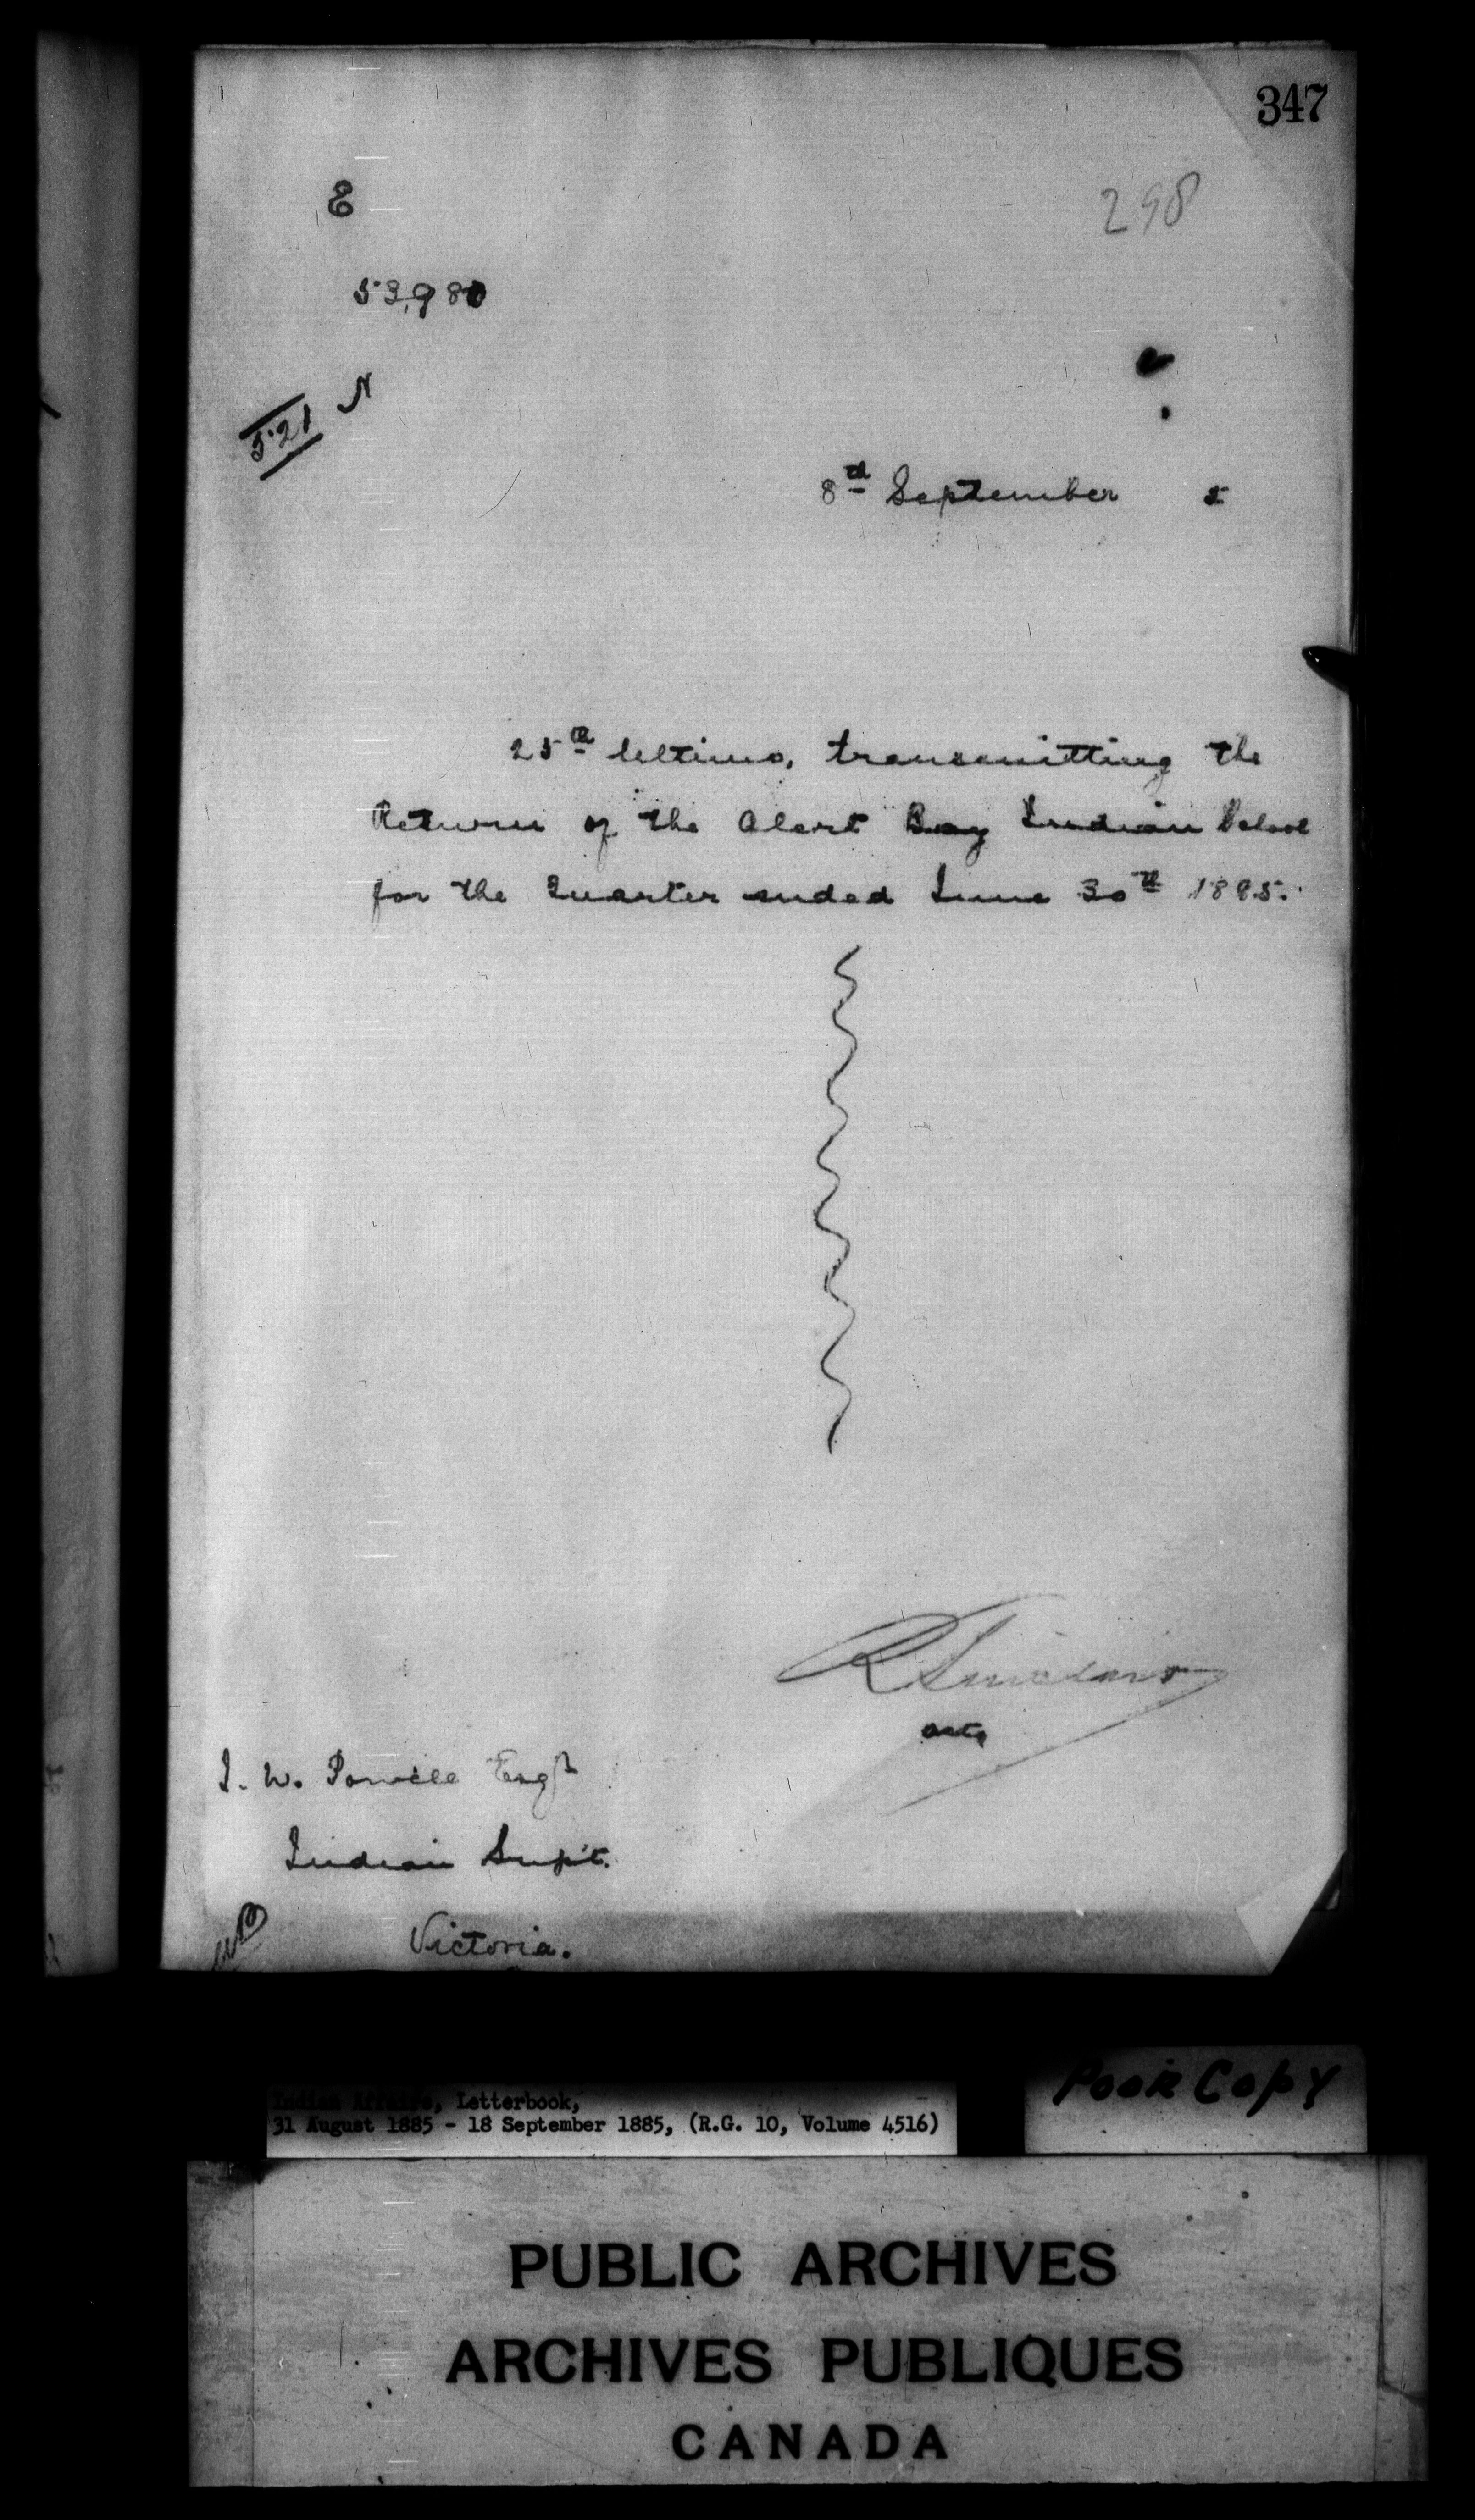 347
E
298
53,980
521 N
8th September 5
25th Ultimo, transmitting the
Return of the Alert Bay Indian School
for the Quarter ended June 30th 1885.
R Sinclair
actg
I. W. Powell Esqr
Indian Supt.
Victoria.
Indian Affairs, Letterbook,
31 August 1885 - 18 September 1885, (R.G. 10, Volume 4516)
Poor Copy
PUBLIC ARCHIVES
ARCHIVES PUBLIQUES
CANADA